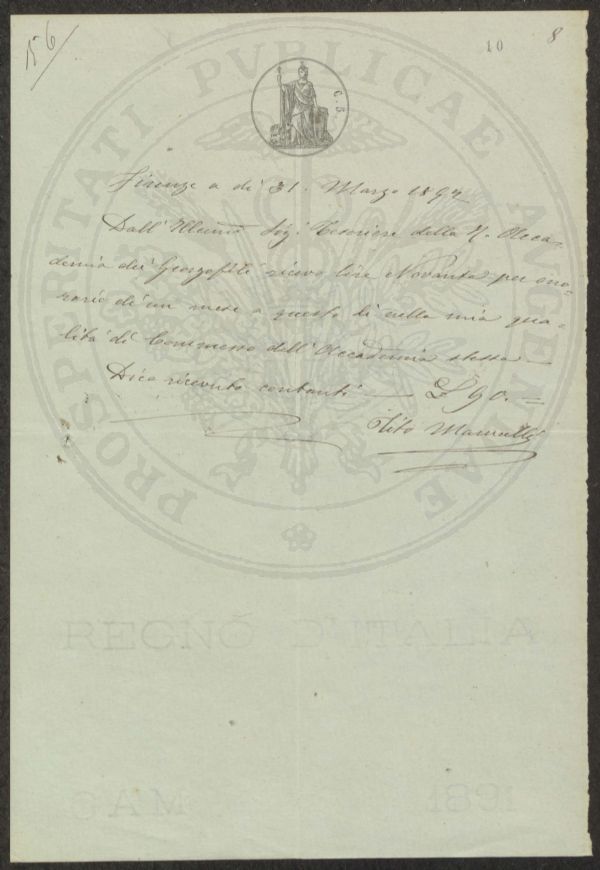 156
10 8
PROSPERITATI PVBLICAE AVGENDAE
C. 5.
Firenze a dì 31. Marzo 1892
Dall' Illmo Sig: Tesoriere della R. Acca-
demia dei Georgofili ricevo lire Novanta per ono-
rario di un mese a questo dì nella mia qua-
lità di Commesso dell' Accademia stessa —
Dico ricevute contanti — £ 90. =
Tito
REGNO D'ITALIA
1891